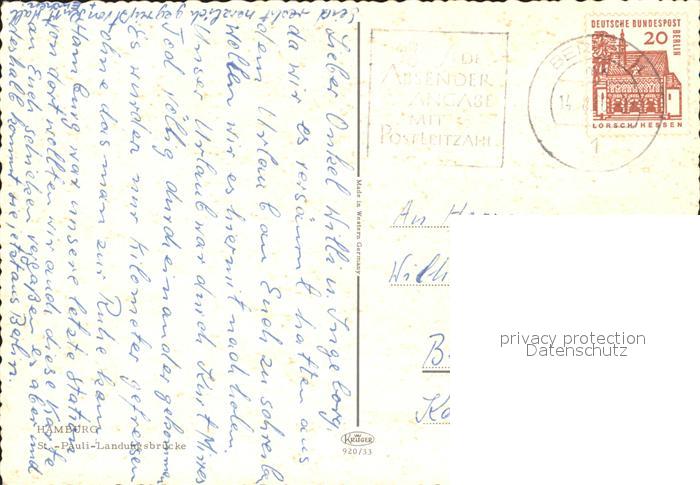 Lieber Onkel Willi u. Ingeborg,
da wir es versäumt hatten aus
dem Urlaub an Euch zu schreiben
wollen wir es hiermit nachholen.
Unser Urlaub war durch Kurt
Tod völlig durcheinander gekommen
Es wurden nur Kilometer gefressen
ohne das man zur Ruhe kam
Hamburg war unsere letzte Station
Von dort wollten wir auch diese Karte
an Euch schicken vergaßen es aber und
deshalb kommt sie jetzt aus Berlin
Seid recht herzlich gegrüßt von
HAMBURG
St.-Pauli-Landungsbrücke
Made in Western Germany
KRÜGER
920/33
ABSENDER
ANGABE
MIT
POSTLEITZAHL
BERLIN
14
1
DEUTSCHE BUNDESPOST
BERLIN
20
LORSCH/HESSEN
An
B
privacy protection
Datenschutz